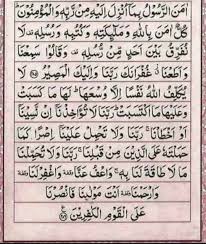 اٰمَنَ الرَّسُوْلُ بِمَآ اُنْزِلَ اِلَيْهِ مِنْ رَّبِّهٖ وَالْمُؤْمِنُوْنَ ؕ
كُلٌّ اٰمَنَ بِاللّٰهِ وَمَلٰٓئِكَتِهٖ وَكُتُبِهٖ وَرُسُلِهٖ لَا
نُفَرِّقُ بَيْنَ اَحَدٍ مِّنْ رُّسُلِهٖ وَقَالُوْا سَمِعْنَا
وَاَطَعْنَا غُفْرَانَكَ رَبَّنَا وَاِلَيْكَ الْمَصِيْرُ ﴿۲۸۵﴾ لَا
يُكَلِّفُ اللّٰهُ نَفْسًا اِلَّا وُسْعَهَا ؕ لَهَا مَا كَسَبَتْ
وَعَلَيْهَا مَا اكْتَسَبَتْ ؕ رَبَّنَا لَا تُؤَاخِذْنَآ اِنْ نَّسِيْنَآ
اَوْ اَخْطَاْنَا رَبَّنَا وَلَا تَحْمِلْ عَلَيْنَآ اِصْرًا كَمَا
حَمَلْتَهٗ عَلَى الَّذِيْنَ مِنْ قَبْلِنَا رَبَّنَا وَلَا تُحَمِّلْنَا
مَا لَا طَاقَةَ لَنَا بِهٖ وَاعْفُ عَنَّا وَاغْفِرْ لَنَا
وَارْحَمْنَا اَنْتَ مَوْلٰىنَا فَانْصُرْنَا
عَلَى الْقَوْمِ الْكٰفِرِيْنَ